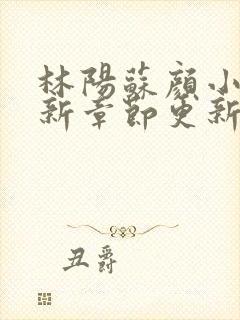 林陽蘇顏小
新章節更新
丑爵